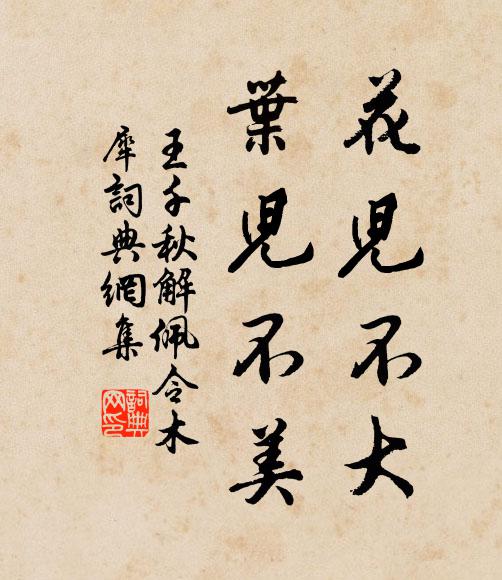 花兒不大
葉兒不美
王千秋解佩令木
犀詞典網集
詞典網印